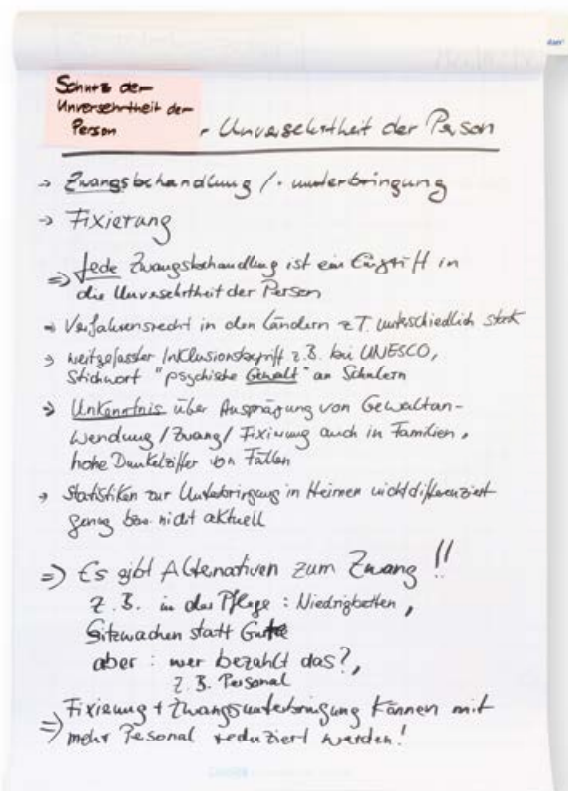 Schutz der
Unversehrtheit der
Person
- Unversehrtheit der Person
→ Zwangsbehandlung / -unterbringung
→ Fixierung
⇒ Jede Zwangsbehandlung ist ein Eingriff in
die Unversehrtheit der Person
→ Verfahrensrecht in den Ländern z.T. unterschiedlich stark
→ weitgefasster Inklusionsbegriff z.B. bei UNESCO,
Stichwort "psychische Gewalt" an Schülern
→ Unkenntnis über Ausprägung von Gewaltan-
wendung / Zwang / Fixierung auch in Familien,
hohe Dunkelziffer von Fällen
→ Statistiken zur Unterbringung in Heimen nicht differenziert
genug bzw. nicht aktuell
⇒ Es gibt Alternativen zum Zwang !!
z.B. in der Pflege : Niedrigbetten,
Sitzwachen statt Gurte
aber : wer bezahlt das?,
z.B. Personal
⇒ Fixierung + Zwangsunterbringung können mit
mehr Personal reduziert werden!